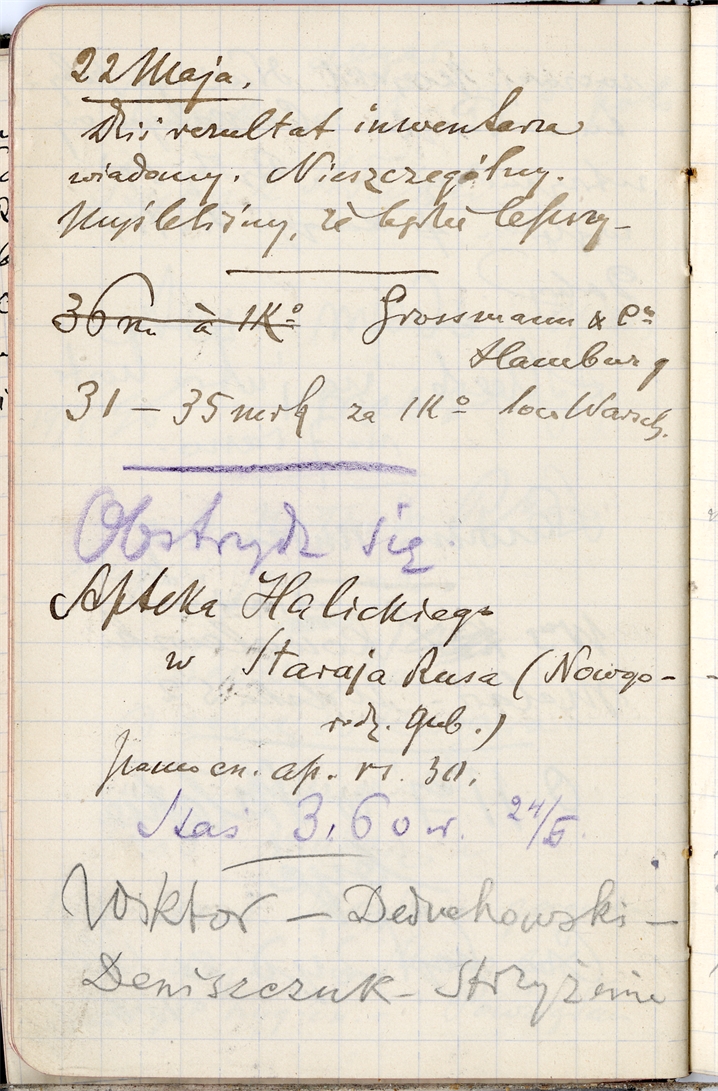 22 Maja.
Dziś rezultat inwentarza
wiadomy. Nieszczególny.
Myśleliśmy, że będzie lepszy –
36 m. à 1K° Grossmann & C°
Hamburg
31 – 35 mrk za 1K° loco Warsch.
Obstrydz się
Apteka Halickiego
w Staraja Rusa (Nowgo-
rodz. gub.)
pomocn. ap. rs. 30.
Staś 3,60 w. 24/5
Wiktor – Deduchowski –
Deniszczuk – Strzyżenie